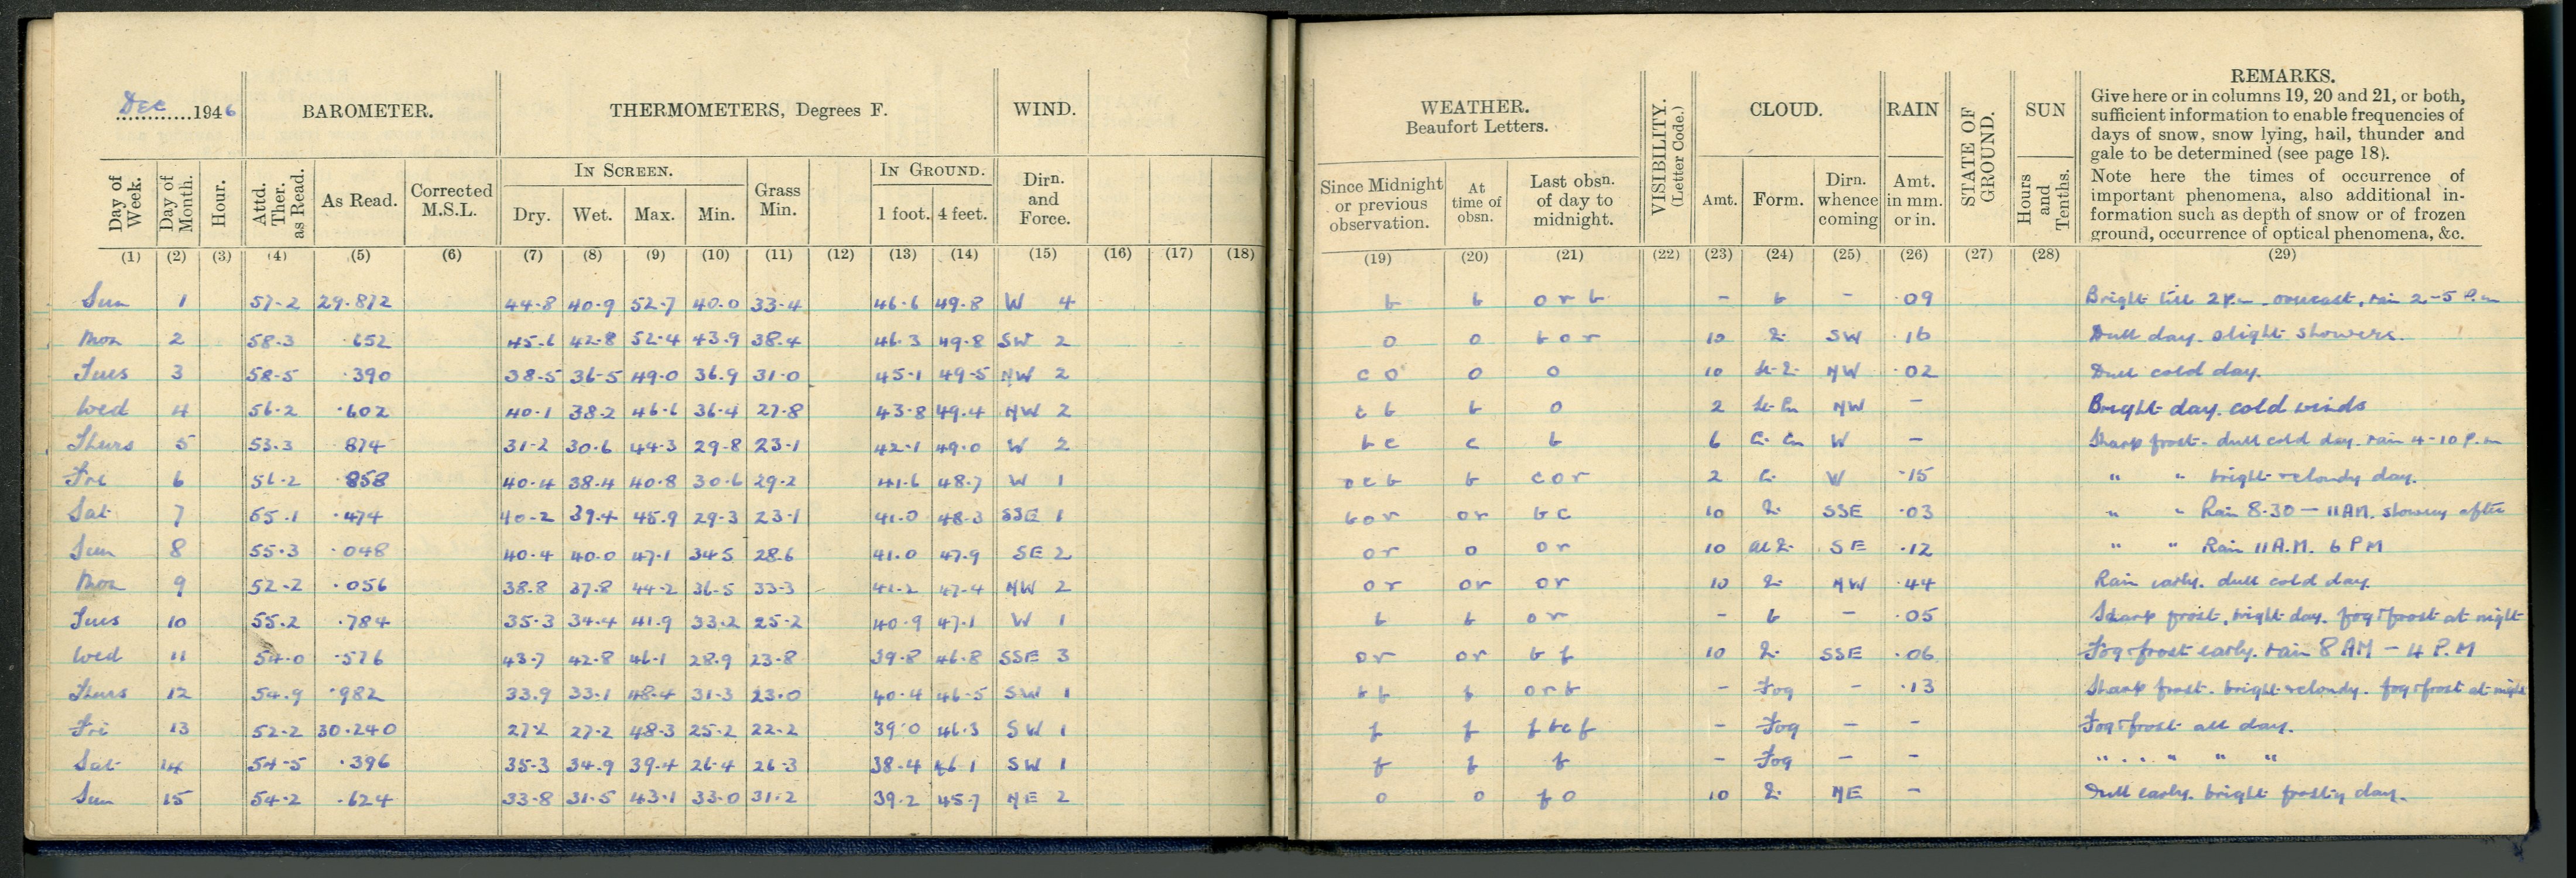 Dec 1946
BAROMETER.
THERMOMETERS, Degrees F.
WIND.
Day of Week.
Day of Month.
Hour.
Attd. Ther. as Read.
As Read.
Corrected M.S.L.
IN SCREEN.
Dry. Wet. Max. Min.
Grass Min.
IN GROUND.
1 foot. 4 feet.
Dirn. and Force.
(1) (2) (3) (4) (5) (6) (7) (8) (9) (10) (11) (12) (13) (14) (15) (16) (17) (18)
Sun 1 57.2 29.872 44.8 40.9 52.7 40.0 33.4 46.6 49.8 W 4
Mon 2 58.3 .652 45.6 42.8 52.4 43.9 38.4 46.3 49.8 SW 2
Tues 3 58.5 .390 38.5 36.5 49.0 36.9 31.0 45.1 49.5 NW 2
Wed 4 56.2 .602 40.1 38.2 46.6 36.4 27.8 43.8 49.4 NW 2
Thurs 5 53.3 874 31.2 30.6 44.3 29.8 23.1 42.1 49.0 W 2
Fri 6 56.2 .858 40.4 38.4 40.8 30.6 29.2 41.6 48.7 W 1
Sat 7 .474 40.2 39.4 45.9 29.3 23.1 41.0 48.3 SSE 1
Sun 8 55.3 .048 40.4 40.0 47.1 34.5 28.6 41.0 47.9 SE 2
Mon 9 52.2 .056 38.8 37.8 44.2 36.5 33.3 41.2 47.4 NW 2
Tues 10 55.2 .784 35.3 34.4 41.9 33.2 25.2 40.9 47.1 W 1
Wed 11 54.0 .576 43.7 42.8 46.1 28.9 23.8 39.8 46.8 SSE 3
Thurs 12 54.9 .982 33.9 33.1 48.4 31.3 23.0 40.4 46.5 SW 1
Fri 13 52.2 30.240 27.2 27.2 48.3 25.2 22.2 39.0 46.3 SW 1
Sat 14 54.5 .396 35.3 34.9 39.4 26.4 26.3 38.4 46.1 SW 1
Sun 15 54.2 .624 33.8 31.5 43.1 33.0 31.2 39.2 45.7 NE 2
WEATHER.
Beaufort Letters.
Since Midnight or previous observation.
At time of obsn.
Last obsn. of day to midnight.
VISIBILITY. (Letter Code.)
CLOUD.
Amt. Form.
Dirn. whence coming
RAIN
Amt. in mm. or in.
STATE OF GROUND.
SUN
Hours and Tenths.
REMARKS.
Give here or in columns 19, 20 and 21, or both,
sufficient information to enable frequencies of
days of snow, snow lying, hail, thunder and
gale to be determined (see page 18).
Note here the times of occurrence of
important phenomena, also additional in-
formation such as depth of snow or of frozen
ground, occurrence of optical phenomena, &c.
(19) (20) (21) (22) (23) (24) (25) (26) (27) (28) (29)
b b o r b - b - .09 Bright till 2 P.m. overcast, rain 2-5 P.m
o o b o r 10 SW .16 Dull day. slight showers.
c o o o 10 NW .02 Dull cold day.
c b b o 2 NW - Bright day. cold winds
b c c b 6 W - Sharp frost. dull cold day. rain 4-10 P.m
o c b b c o r 2 W .15 " " bright & cloudy day.
b o r o r b c 10 SSE .03 " " Rain 8.30 - 11 AM. showery after
o r o o r 10 SE .12 " " Rain 11 A.M. 6 PM
o r o r o r 10 NW .44 Rain early. dull cold day.
b b o r - b - .05 Sharp frost, bright day. fog & frost at night
o r o r b f 10 SSE .06 Fog & frost early. rain 8 AM - 4 P.M
b f f o r b - Fog - .13 Sharp frost. bright & cloudy. fog & frost at night
f f f b c f - Fog - - Fog & frost all day.
f f f - Fog - - " " " " "
o o f o 10 NE - Dull early. bright frosty day.